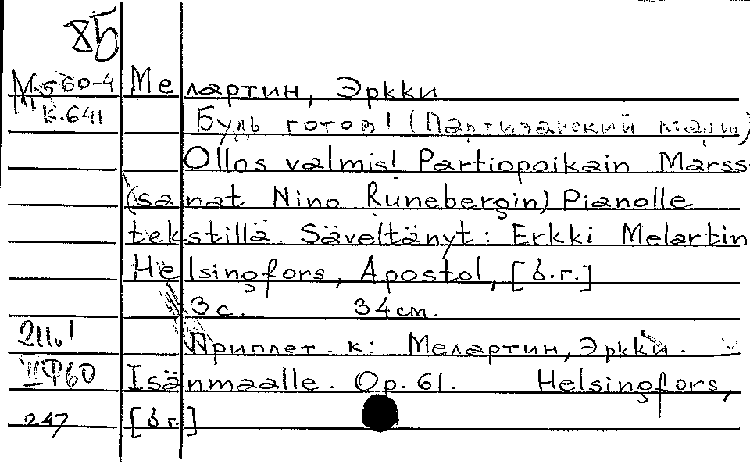 8Б
М560-4 Мелартин, Эркки
К.641 Будь готов! (Партизанский марш)
Ollos valmis! Partiopoikain Marss
(sanat Nino Runebergin) Pianolle
tekstillä. Säveltänyt: Erkki Melartin
Helsingfors, Apostol, [б.г.]
3 с. 34 см.
Приплет. к: Мелартин, Эркки.
IIФ60 Isänmaalle. Op. 61. Helsingfors,
247 [б.г.]